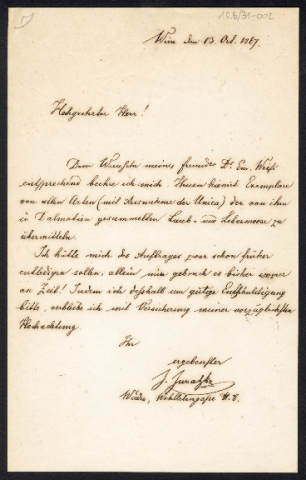 106/31-002
Wien den 13 Oct. 1867.
Hochgeehrter Herr!
Dem Wunsche meines Freundes Dr. Em. Weiß
entsprechend beehre ich mich Ihnen hiemit Exemplare
von allen Arten (mit Ausnahme der Unica) der von ihm
in Dalmatien gesammelten Laub- und Lebermoose zu
übermitteln.
Ich hätte mich des Auftrages zwar schon früher
entledigen sollen, allein mir gebrach es bisher
an Zeit! Indem ich desshalb um gütige Entschuldigung
bitte, verbleibe ich mit Versicherung meiner vorzüglichsten
Hochachtung
Ihr
ergebenster
J. Juratzka
Wien,